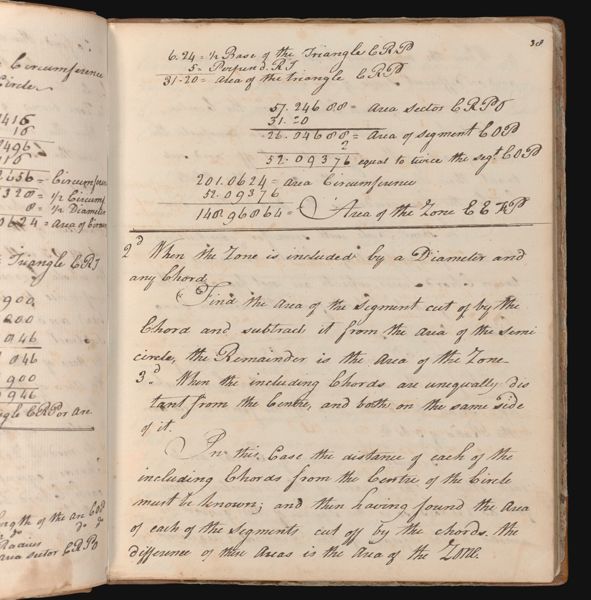 Circumference
Circle.
2416
16
2496
416
2656 = Circumference
1328 = 1/2 Circumf
8 = 1/2 Diameter
0624 = Area of
Triangle CRP
900
200
046
046
900
0946
Length of the arc COP
Radius do do
Area sector CRPO
38
6.24 = 1/2 Base of the Triangle CRP
5 = Perpend. RI
31.20 = Area of the triangle CRP
57.24688 = Area sector CRPO
31.20
26.04688 = Area of segment COP
2
52.09376 equal to twice the segt COP
201.0624 = area Circumference
52.09376
148.96864 = Area of the Zone
2d When the Zone is included by a Diameter and
any Chord
Find the area of the segment cut of by the
Chord and subtract it from the area of the semi
circle, the Remainder is the area of the Zone
3d. When the including Chords are unequally dis
tant from the Centre, and both on the same side
of it.
In this Case the distance of each of the
including Chords from the Centre of the Circle
must be known; and then having found the Area
of each of the Segments cut off by the chords. the
difference of these Areas is the Area of the Zone.